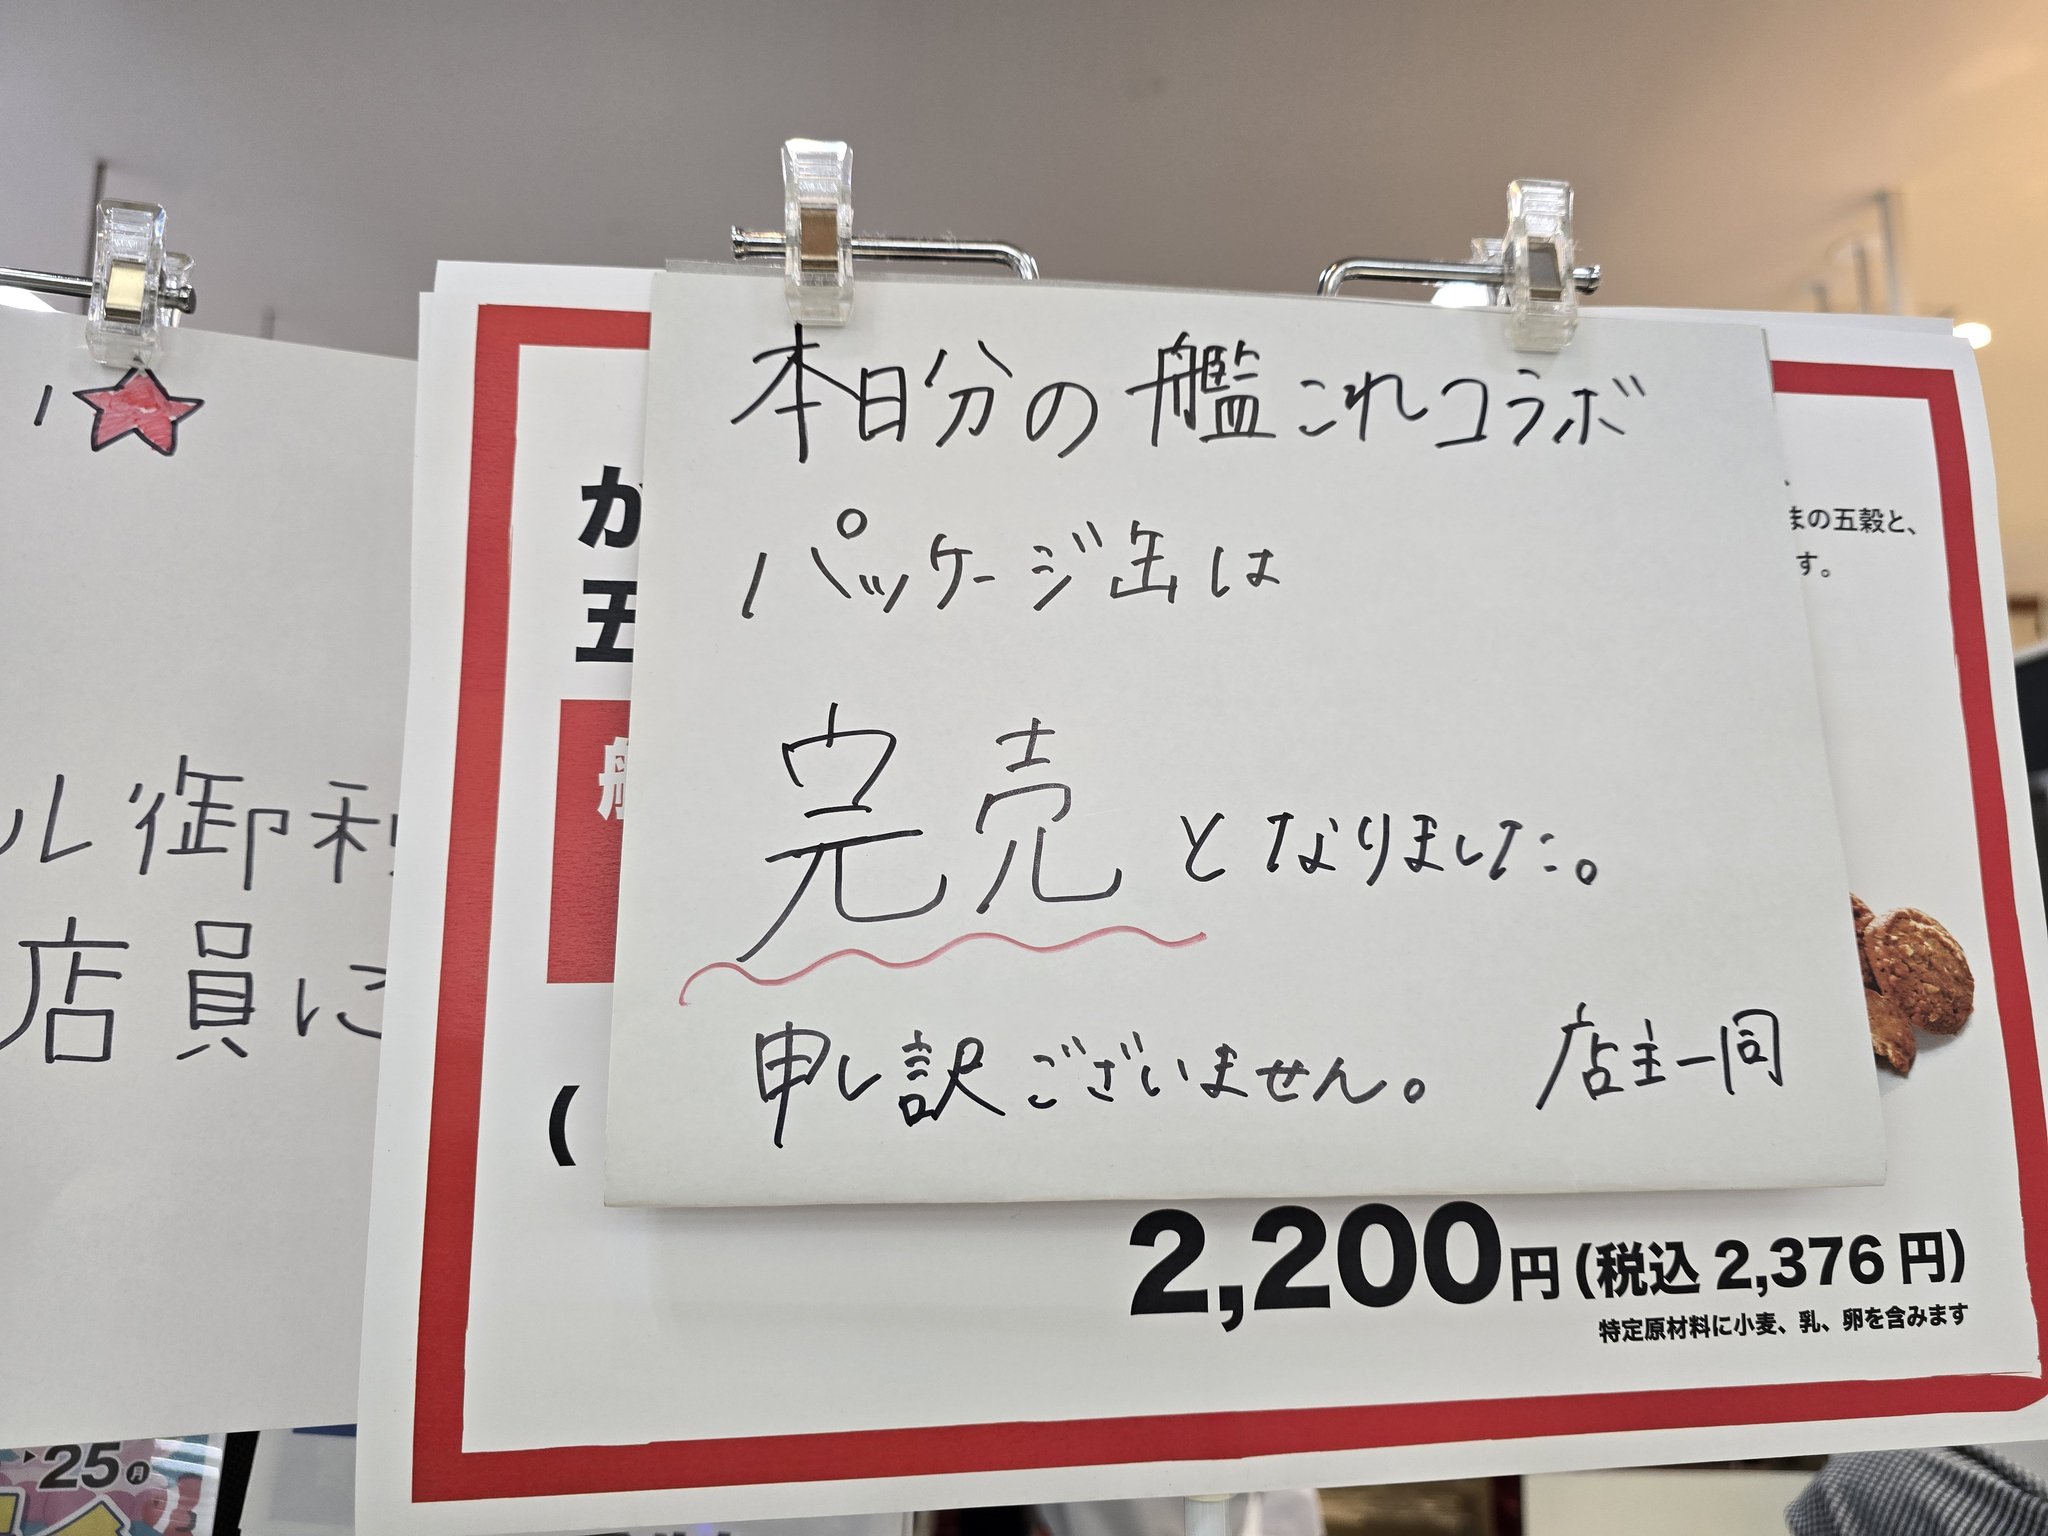 本日分の艦これコラボ
パッケージ缶は
完売となりました。
申し訳ございません。 店主一同
か
五
まの五穀と、
す。
(
2,200円(税込 2,376 円)
特定原材料に小麦、乳、卵を含みます
ル御利
店員に
25月